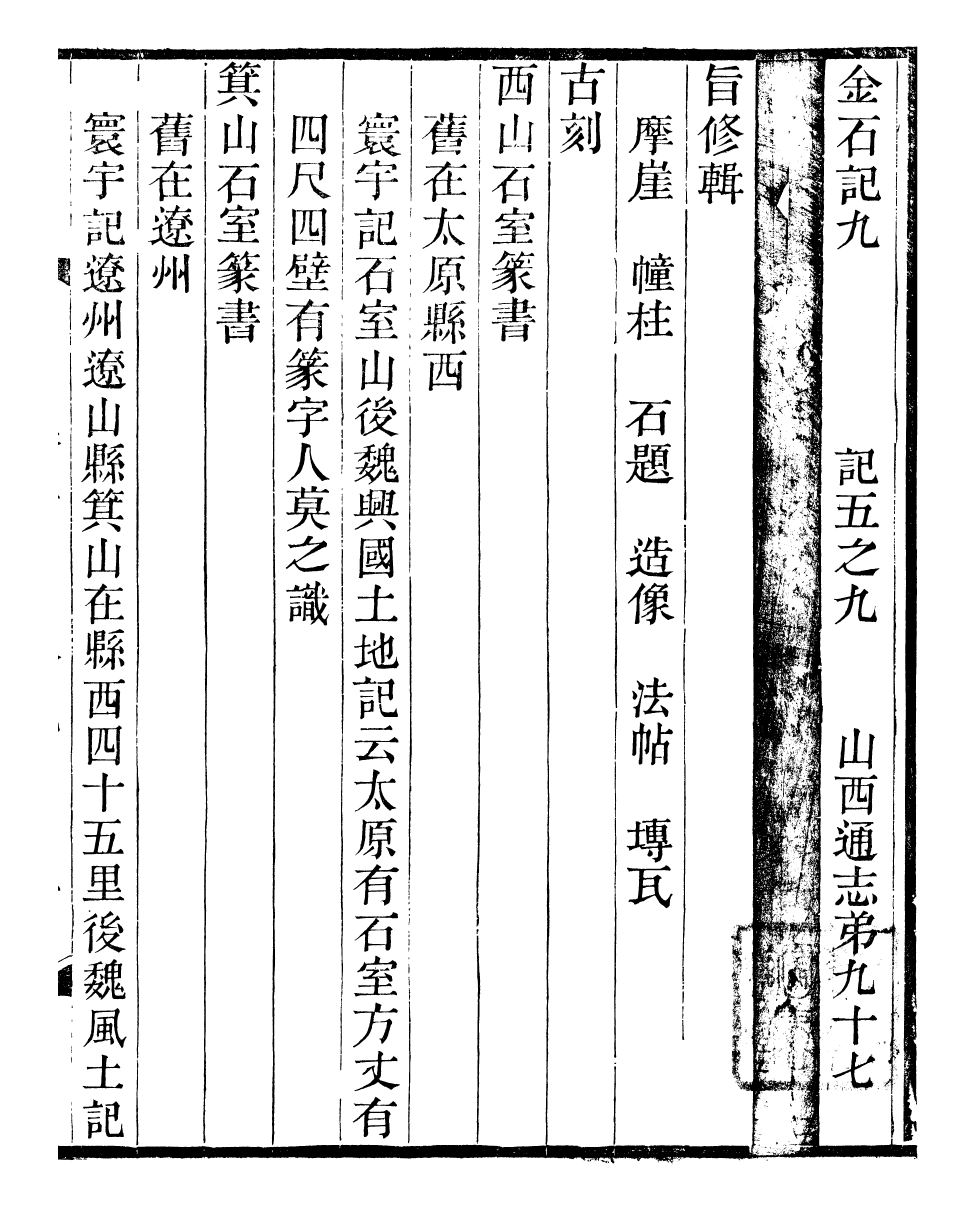 金石記九　記五之九　山西通志弟九十七
旨修輯
摩崖　幢柱　石題　造像　法帖　塼瓦
古刻
西山石室篆書
舊在太原縣西
寰宇記石室山後魏興國土地記云太原有石室方丈有
四尺四壁有篆字人莫之識
箕山石室篆書
舊在遼州
寰宇記遼州遼山縣箕山在縣西四十五里後魏風土記